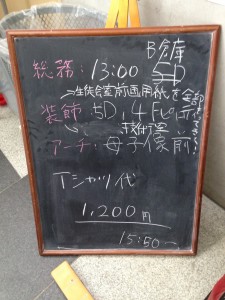 B倉庫
総務：13:00 5D
生徒会室前画用紙を全部
装飾：5D,4F
アーチ：母子像前
Tシャツ代
1,200円
15:50~